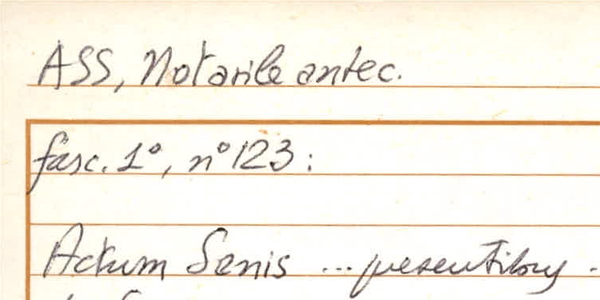 ASS, Notarile antec.
fasc. 1°, n° 123:
Actum Senis ... presentibus